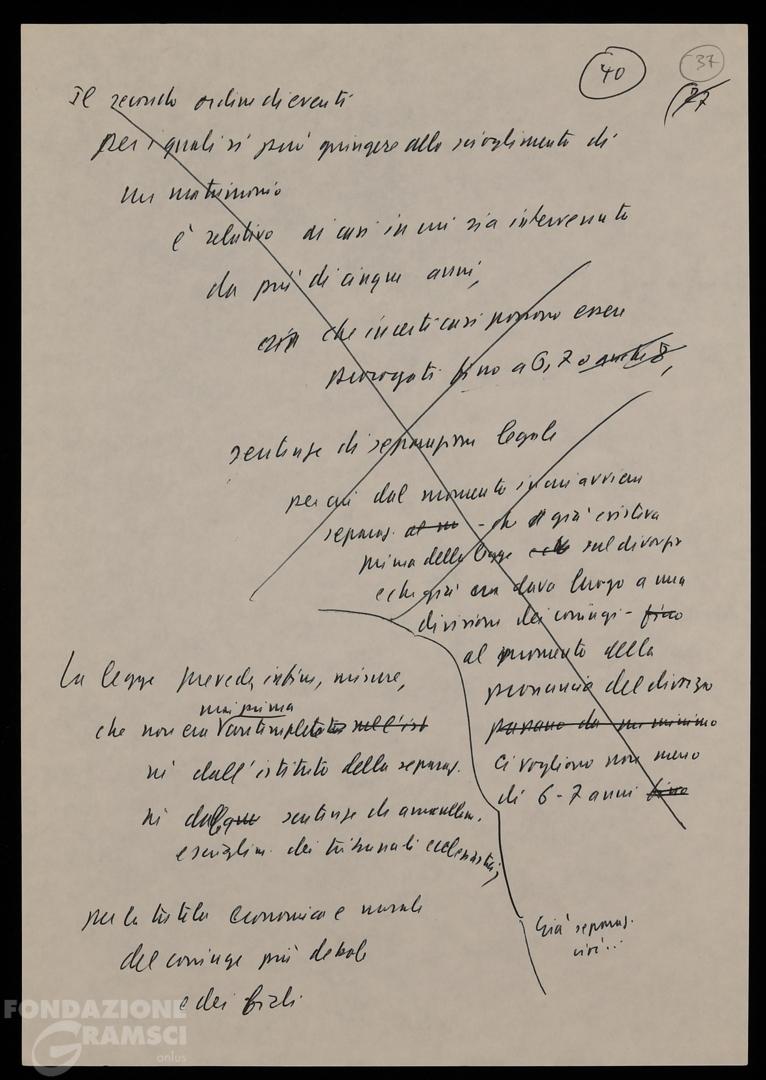 40
37
77
Il secondo ordine di eventi
per i quali si può giungere allo scioglimento di
un matrimonio
è relativo ai casi in cui sia intervenuta
da più di cinque anni,
che in certi casi possono essere
prorogati fino a 6, 7 o anche 8,
sentenza di separazione legale
per cui dal momento in cui avviene
separaz. - che già esisteva
prima della legge sul divorzio
e che già dava luogo a una
divisione dei coniugi - fino
al momento della
pronuncia del divorzio
passano da un minimo
ci vogliono non meno
di 6-7 anni fino
La legge prevede, infine, misure,
mai prima
che non era contemplate nell'ist
né dall'istituto della separaz.
né dalle sentenze di annullam.
e scioglim. dei tribunali ecclesiastici,
per la tutela economica e morale
del coniuge più debole
e dei figli
Già separaz.
FONDAZIONE
GRAMSCI
onlus